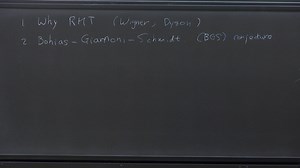 1 Why RMT (Wigner, Dyson)
2 Bohias-Giannoni-Schmidt (BGS) conjecture